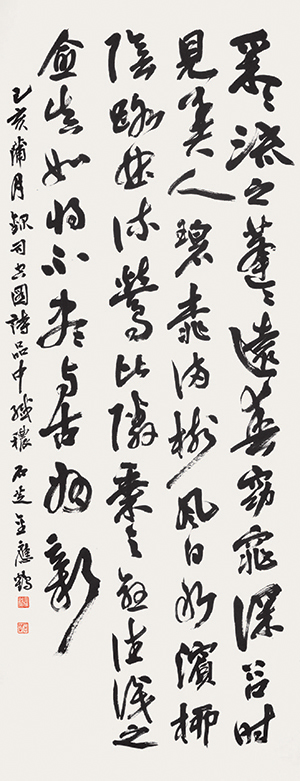 采采流水蓬蓬遠春窈窕深谷時
見美人碧桃滿樹風日水濱柳
陰路曲流鶯比隣乘之愈往識之
愈真如將不盡與古為新
己亥蒲月録司空圖詩品中纖穠 石芝金應鶴